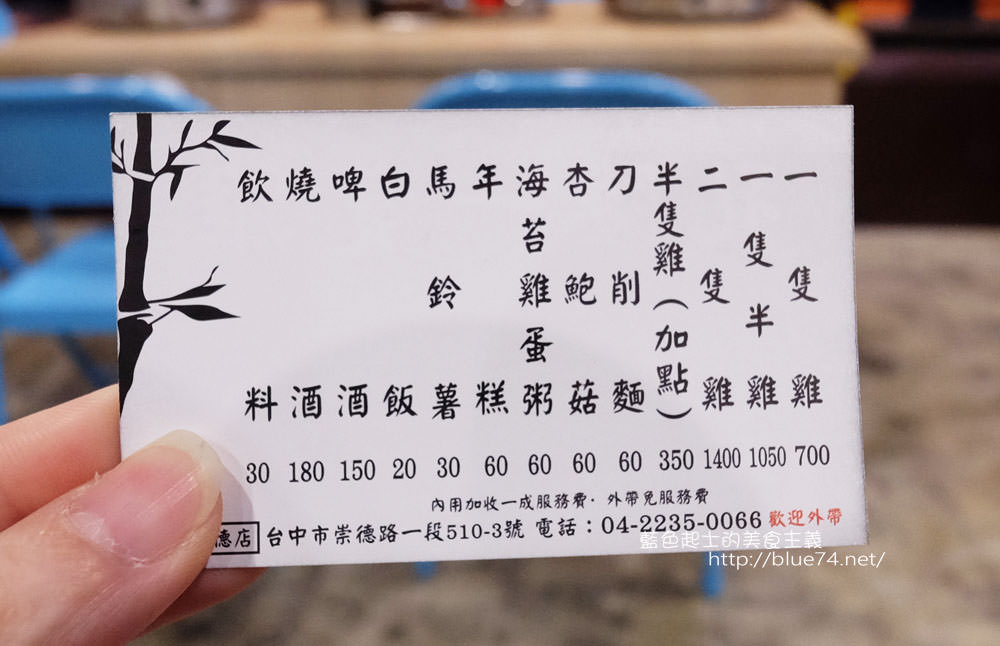 一隻雞 700
一隻半雞 1050
二隻雞 1400
半隻雞(加點) 350
刀削麵 60
杏鮑菇 60
海苔雞蛋粥 60
年糕 60
馬鈴薯 30
白飯 20
啤酒 150
燒酒 180
飲料 30
內用加收一成服務費·外帶免服務費
德店 台中市崇德路一段510-3號 電話:04-2235-0066 歡迎外帶
藍色起士的美食主義
http://blue74.net/